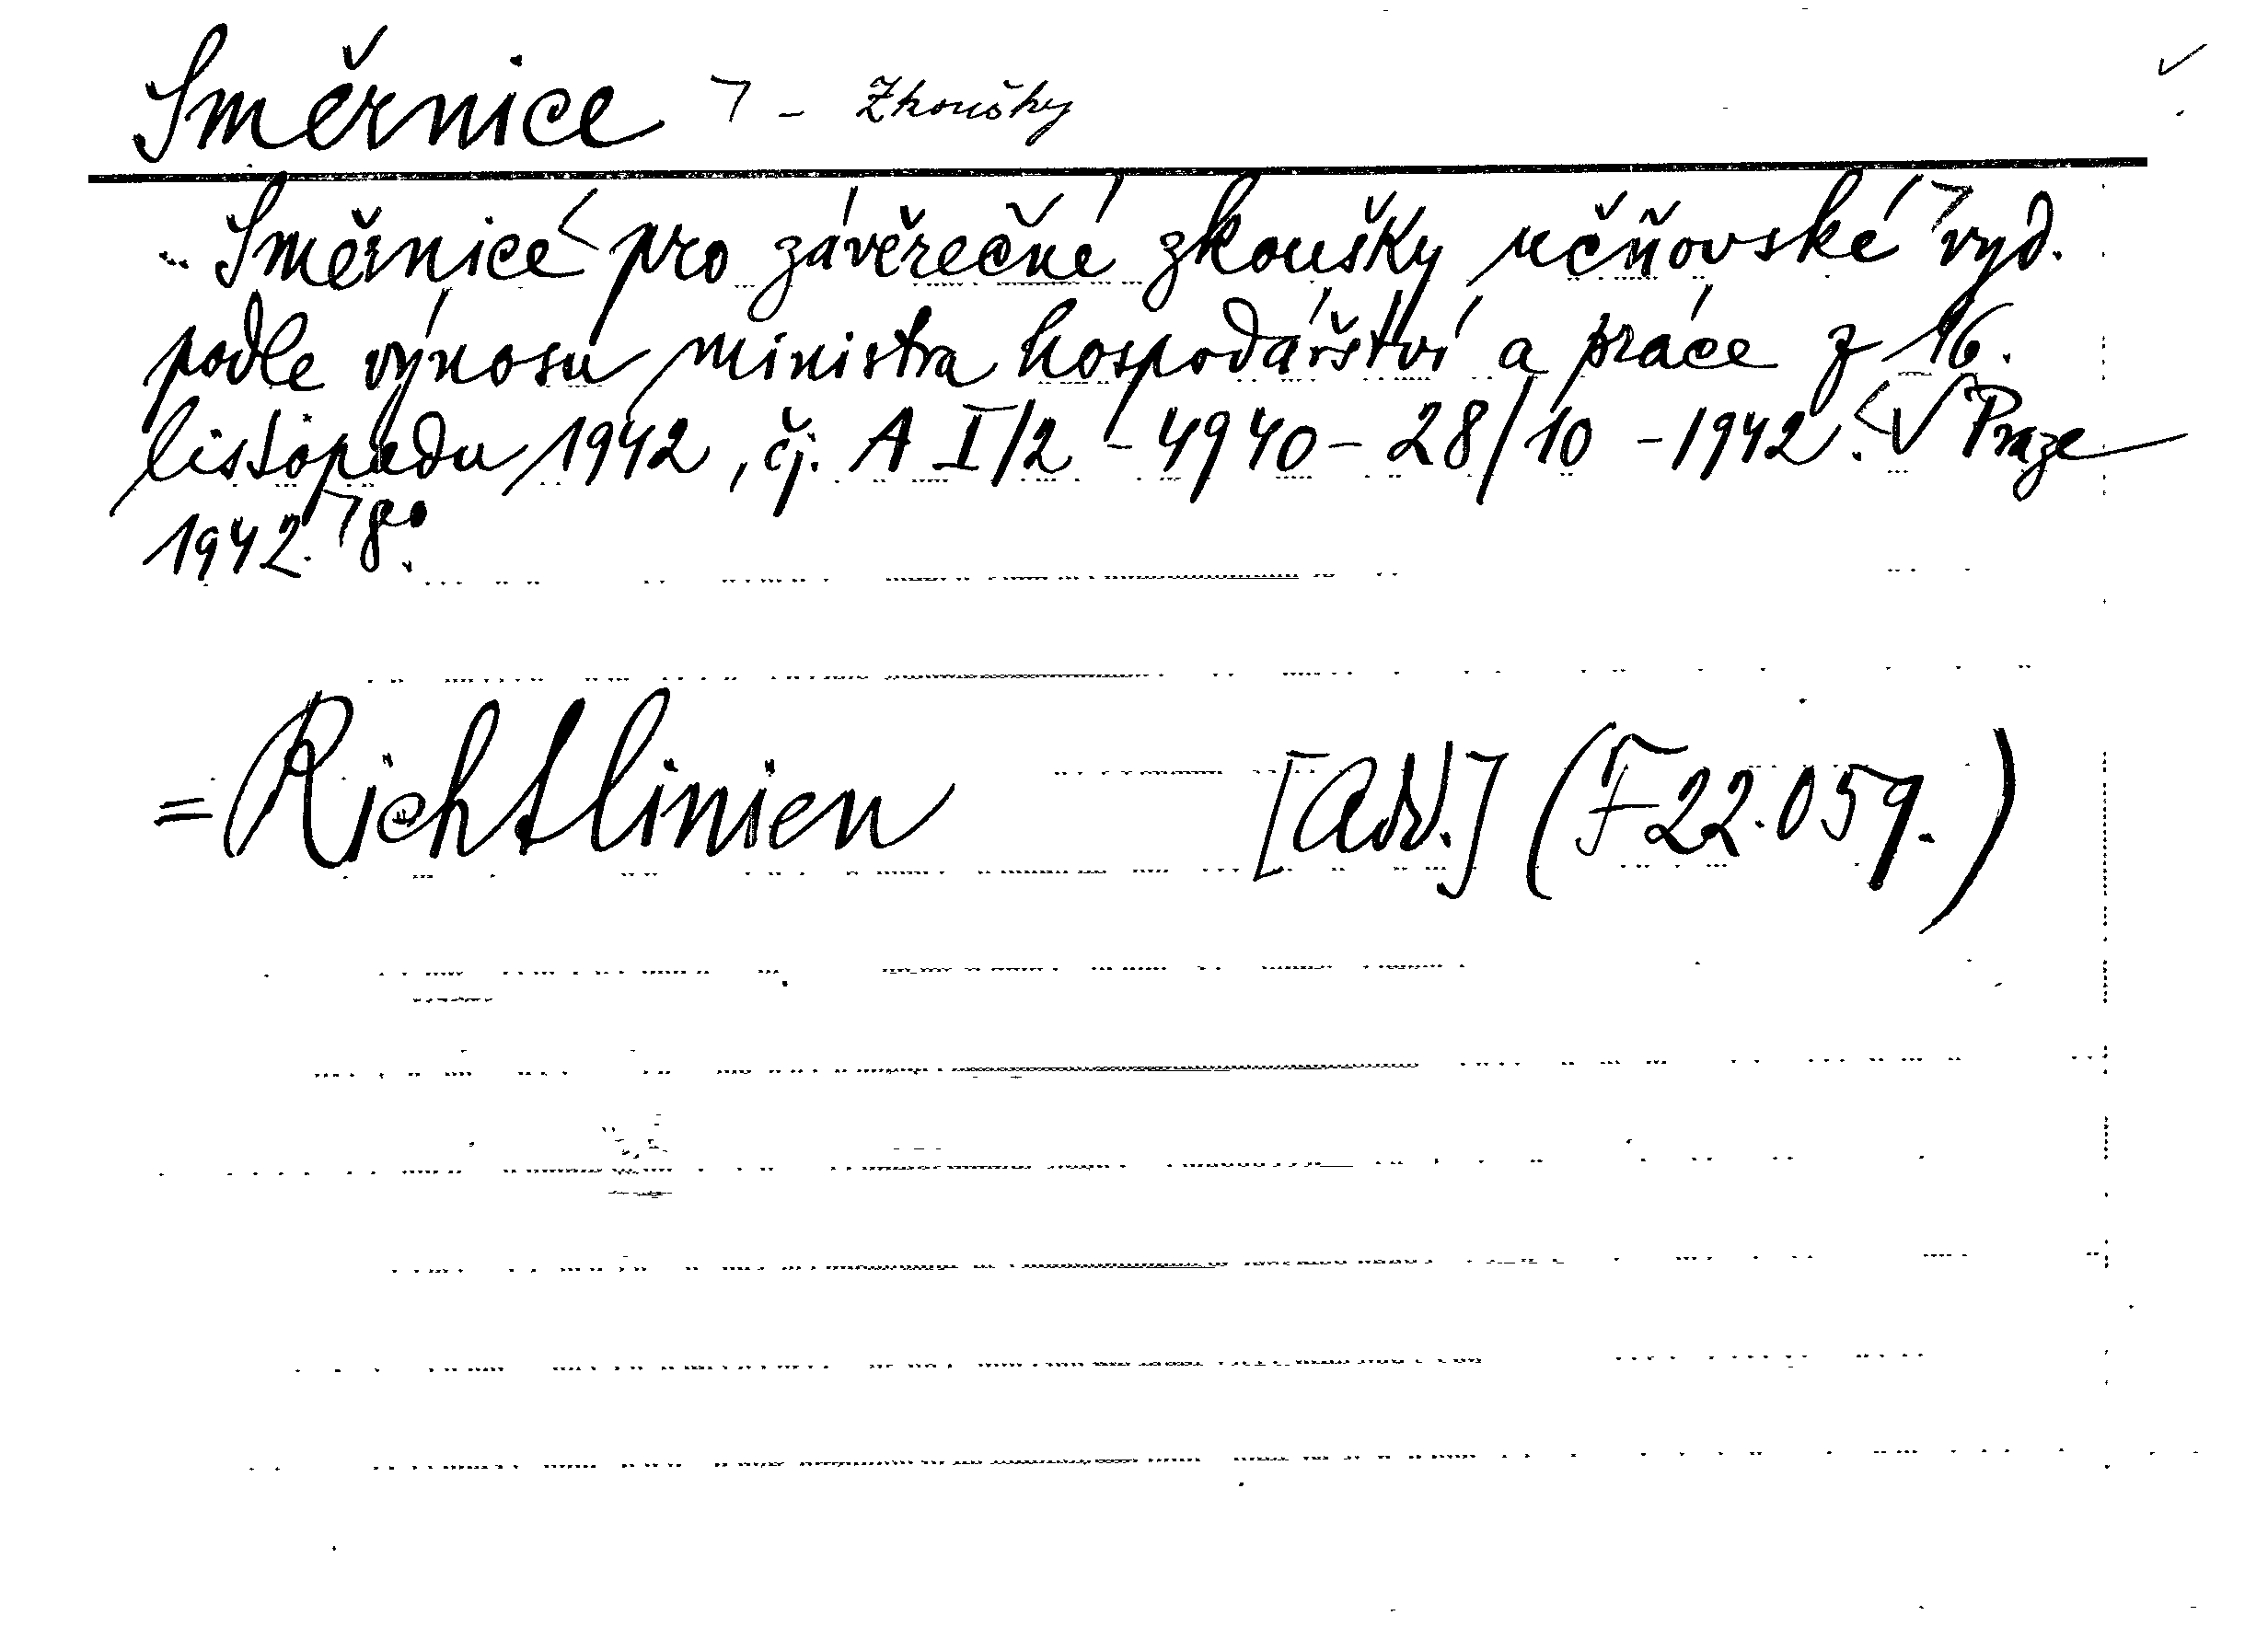 Směrnice - Zkoušky
Směrnice pro závěrečné zkoušky učňovské vyd.
podle výnosu ministra hospodářství a práce z 16.
listopadu 1942, čj. A I/2 - 4940 - 28/10 - 1942. V Praze
1942. 8°.
= Richtlinien [Adl.] (F 22.059.)